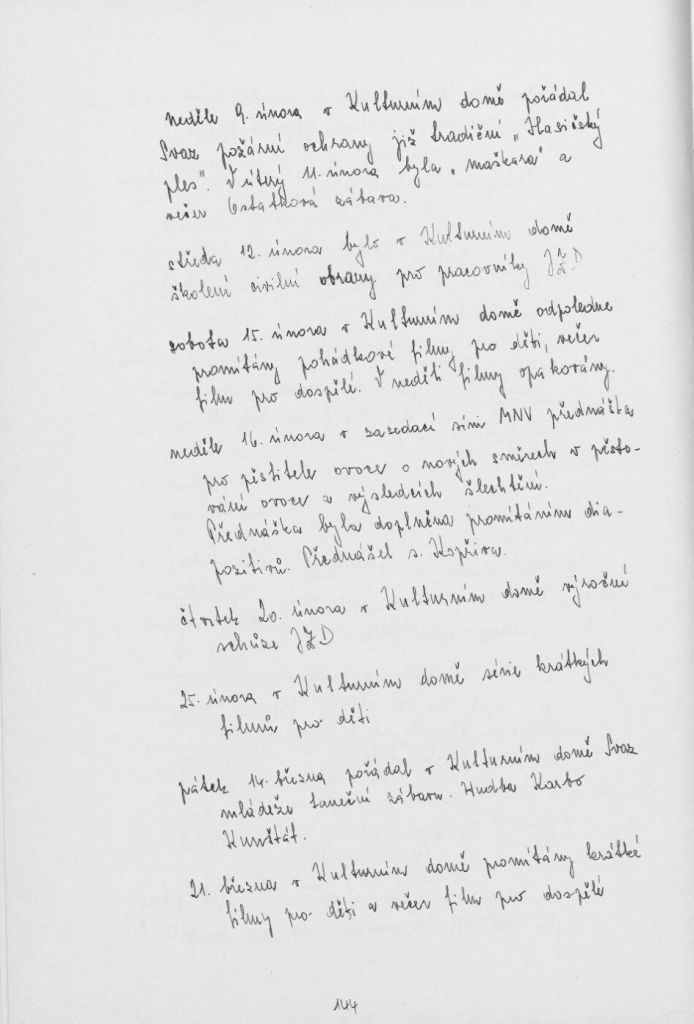 neděle 9. února v Kulturním domě pořádal
Svaz požární ochrany již tradiční „Hasičský
ples". V úterý 11. února byla „maškara" a
večer Ostatková zábava.
středa 12. února bylo v Kulturním domě
školení civilní obrany pro pracovníky JZD
sobota 15. února v Kulturním domě odpoledne
promítány pohádkové filmy pro děti, večer
film pro dospělé. V neděli filmy opakovány.
neděle 16. února v zasedací síni MNV přednášta
pro pěstitele ovoce o nových směrech v pěsto-
vání ovoce a výsledcích šlechtění.
Přednáška byla doplněna promítáním dia-
pozitivů. Přednášel s. Kopřiva.
čtvrtek 20. února v Kulturním domě výroční
schůze JZD
25. února v Kulturním domě série krátkých
filmů pro děti
pátek 14. března pořádal v Kulturním domě Svaz
mládeže taneční zábavu. Hudba Karbo
Kunštát.
21. března v Kulturním domě promítány krátké
filmy pro děti a večer film pro dospělé
144